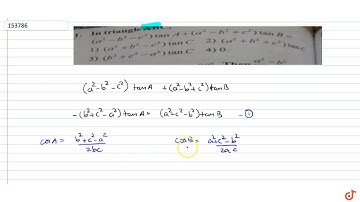 153786
1. In triangle ABC,
(a²-b²-c²) tan A + (a²-b²+c²) tan B =
1) (a²+b²-c²) tan C 2) (a²+b²+c²) tan C
3) (b²+c²-a²) tan C 4) 0.
(a²-b²-c²) tanA + (a²-b²+c²) tanB
-(b²+c²-a²) tanA + (a²+c²-b²) tanB -①
cosA = b²+c²-a² / 2bc cosB = a²+c²-b² / 2ac